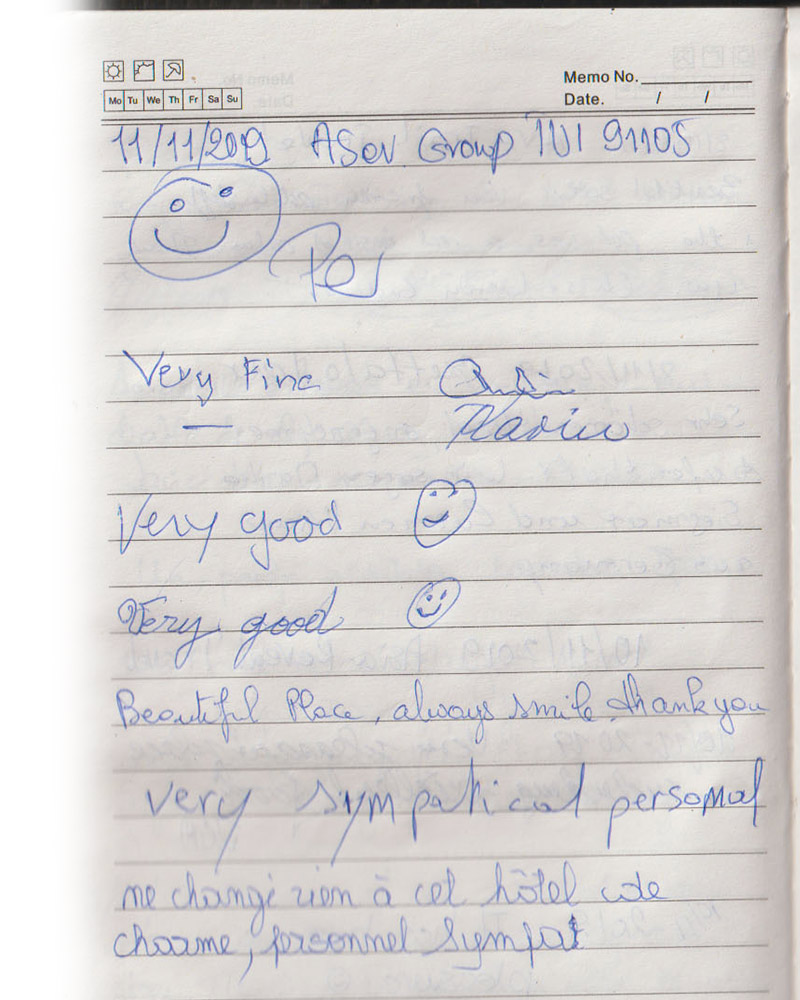 Memo No.
Mo Tu We Th Fr Sa Su
Date. / /
11/11/2019 ASEV Group 1U1 91105
Very Fine
Very good
Very good
Beautiful Place, always smile, thank you
very sympatical personal
me changé rien à cet hôtel de
charme, personnel sympat